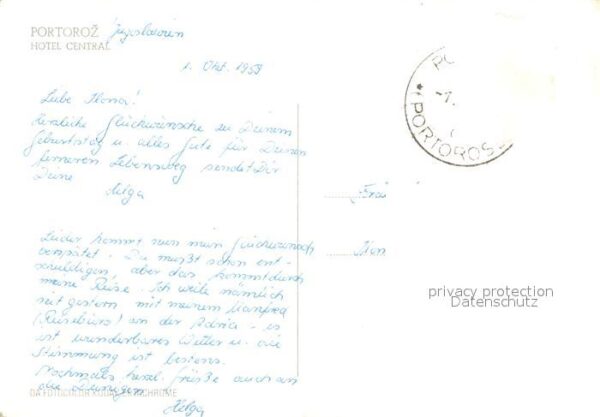 PORTOROŽ Jugoslawien
HOTEL CENTRAL
1. Okt. 1959
Liebe Ilona!
Herzliche Glückwünsche zu Deinem
Geburtstag u. alles Gute für Deinen
ferneren Lebensweg sendet Dir
Deine
Helga
Leider kommt nun mein Glückwunsch
verspätet. Du mußt schon ent-
schuldigen, aber das kommt durch
meine Reise. Ich weile nämlich
seit gestern mit meinem
(Reisebüro) an der Adria - es
ist wunderbares Wetter u. die
Stimmung ist bestens.
Nochmals herzl. Grüße auch an
die Deinigen
Helga
Frau
PORTOROS
-7.
privacy protection
Datenschutz